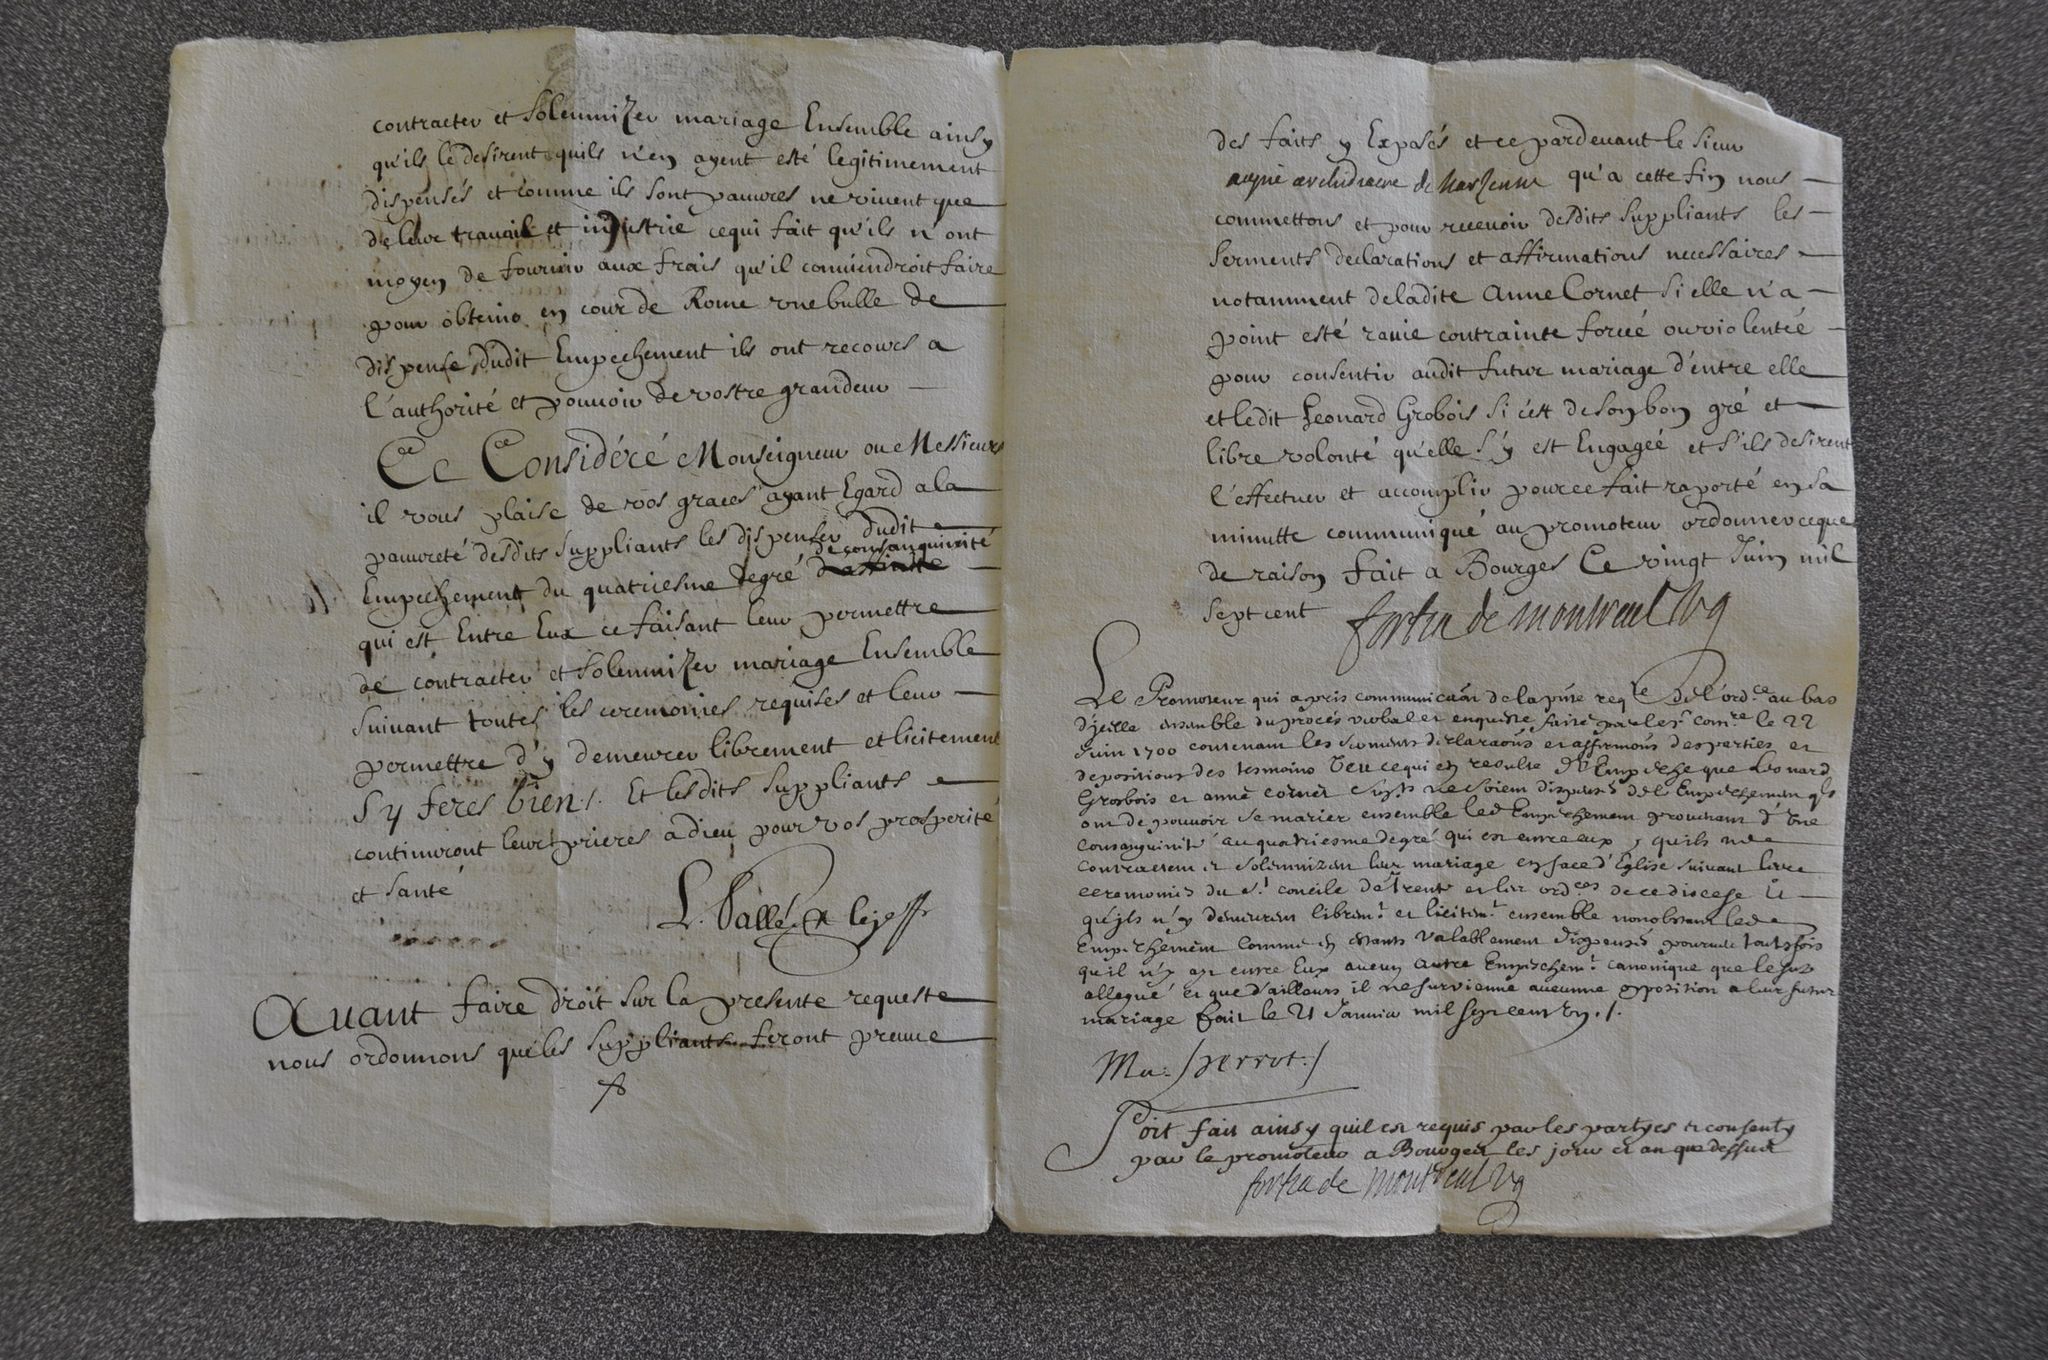 contracter et solemnizer mariage Ensemble ainsy
qu'ils le desirent quils n'en ayent esté legitimement
dispensés et comme ils sont pauvres ne vivent que
de leur travail et industrie cequi fait qu'ils n'ont
moyen de fournir aux frais qu'il conviendroit faire
pour obtenir en cour de Rome une bulle de
dispense dudit Empechement ils ont recours a
l'authorité et pouvoir de vostre grandeur
Ce Considéré Monseigneur ou Messieurs
il vous plaise de vos graces ayant Egard a la
pauvreté desdits suppliants les dispenser dudit
de consanguinité
Empechement du quatriesme degré
qui est Entre Eux ce faisant leur permettre
de contracter et solemnizer mariage Ensemble
suivant toutes les ceremonies requises et leur
permettre d'y demeurer librement et licitement
sy feres bien /. Et lesdits suppliants
continuront leurs prieres a dieu pour vos prosperité
et santé
L. Vallée
Avant faire droit sur la presente requeste
nous ordonnons que les suppliants feront preuve
des faits y Exposés et ce pardevant le sieur
archidiacre de qu'a cette fin nous
commettons et pour recevoir desdits suppliants les
serments declarations et affirmations necessaires
notamment deladite Anne Cornet si elle n'a
point esté ravie contrainte forcée ou violentée
pour consentir audit futur mariage d'entre elle
et ledit Leonard Grobois si c'est de son bon gré et
libre volonté qu'elle s'y est Engagée et s'ils desirent
l'effectuer et accomplir pour ce fait raporté en sa
minutte communiqué au promoteur ordonner ceque
de raison fait a Bourges Ce vingt Juin mil
sept cent fortia de montreul vg
Le Promoteur qui a pris communicaon de la pnte reqte de l'ordce au bas
d'jcelle ensemble du procés verbal et enqueste faite par le sr comre le 22
Juin 1700 contenant les serments declaraons et affirmaons des parties et
depositions des tesmoins Veu cequi en resulte N'Empeche que Leonard
Grosbois et anne cornet ne soient dispensés de l'Empechement qls
ont de pouvoir se marier ensemble led Empechement provenant d'Vne
consanguinité au quatriesme degré qui est entre eux, quils ne
contractent et solemnizent leur mariage en face d'Eglise suivant les
ceremonies du st concile de Trente et les ordces de ce diocese Et
qu'jls n'y demeurent libremt et licitemt ensemble nonobstant led
Empechement comme en estants valablement dispensés pourveu toutefois
qu'il n'y ayt entre Eux aucun autre Empeschemt canonique que le sus
allegué et que d'ailleurs il ne survienne aucunne opposition a leur futur
mariage fait le 21 Janvier mil sept cent Vn. /.
Perrot /
Soit fait ainsy quil est requis par les partyes et consenty
par le promoteur a Bourges les jour et an que dessus
fortia de montreul vg